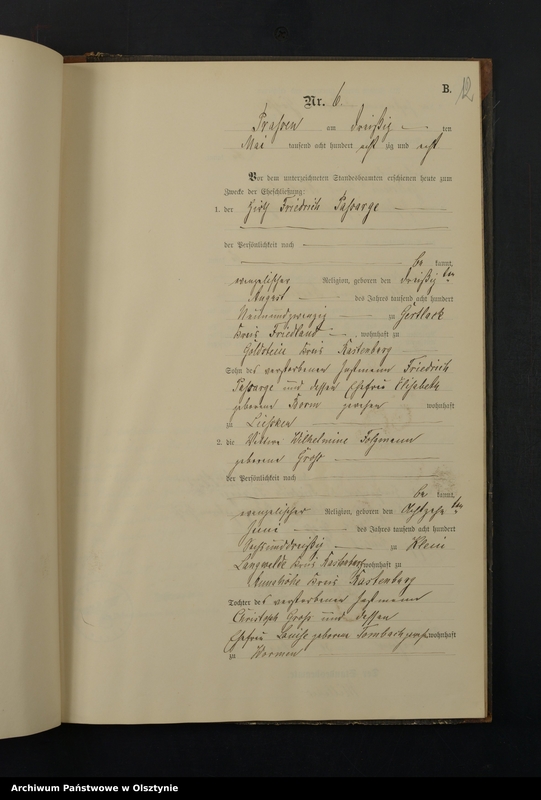 B. 12
Nr. 6.
am dreißig ten
Mai tausend acht hundert acht zig und acht
Vor dem unterzeichneten Standesbeamten erschienen heute zum
Zwecke der Eheschließung:
1. der Hirth Friedrich Passarge
der Persönlichkeit nach
be kannt,
evangelischer Religion, geboren den dreißig ten
August des Jahres tausend acht hundert
Neunundzwanzig zu Görtlack
Kreis Friedland wohnhaft zu
Goldstein Kreis Rastenberg
Sohn des verstorbenen Instmann Friedrich
Passarge und dessen Ehefrau Elisabeth
geborene gewesen wohnhaft
zu
2. die Wittwe Wilhelmine
geborene Groß
der Persönlichkeit nach
be kannt,
evangelischer Religion, geboren den Achtzehn ten
Juni des Jahres tausend acht hundert
Sechsunddreißig zu Klein
Langwalde Kreis wohnhaft zu
Annahöhe Kreis Rastenberg
Tochter des verstorbenen Instmann
Christoph Groß und dessen
Ehefrau Louise geborene Dombach wohnhaft
zu Wormen
Archiwum Państwowe w Olsztynie